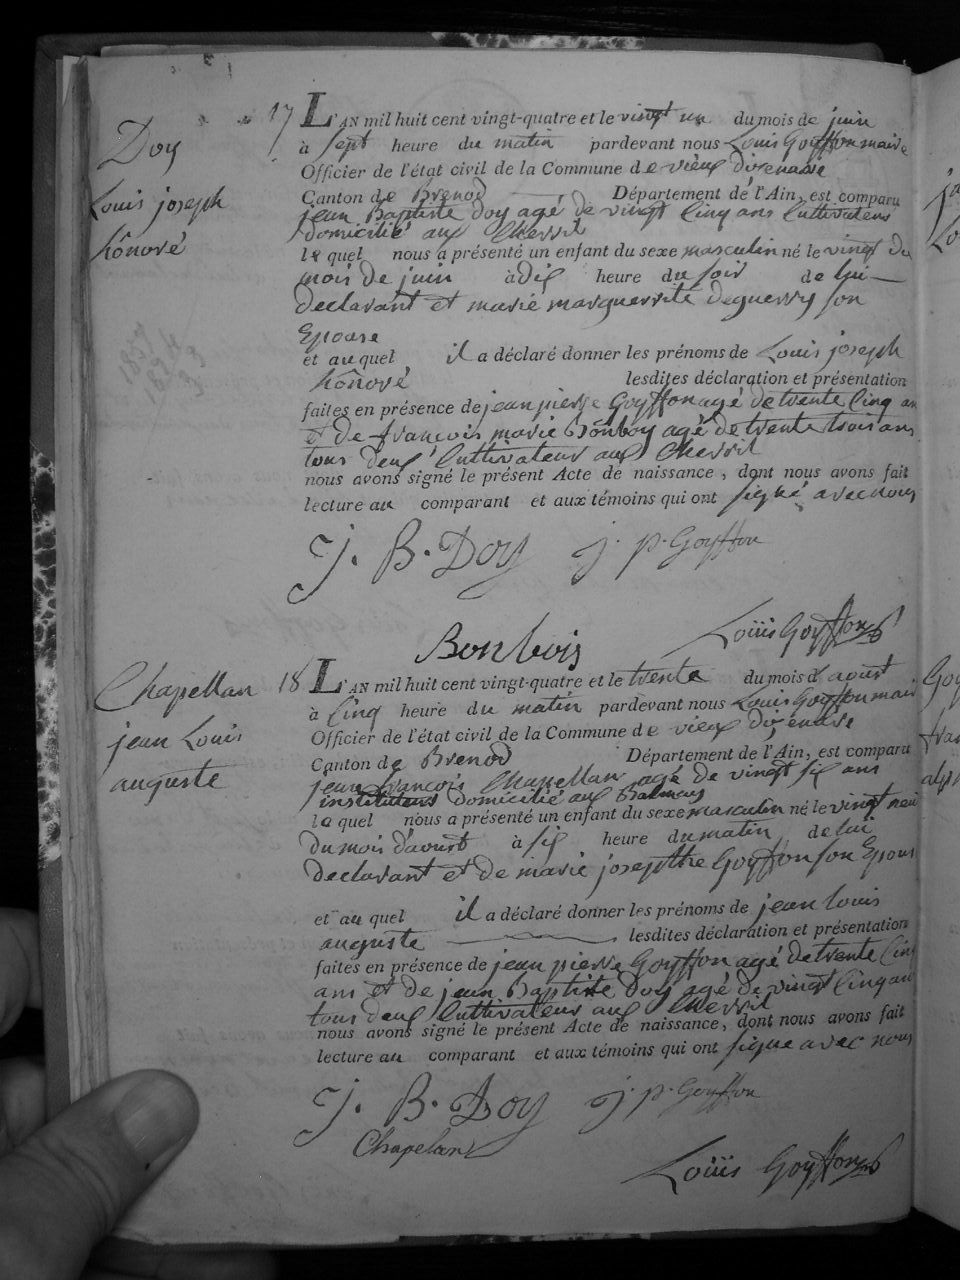 17
Doy
Louis joseph
hônoré
L'AN mil huit cent vingt-quatre et le vingt un du mois de juin
à sept heure du matin pardevant nous Louis Goyffon maire
Officier de l'état civil de la Commune de vieux dizenave
Canton de Brenod Département de l'Ain, est comparu
jean Baptiste Doy agé de vingt Cinq ans Cultivateur
domicilié aux
le quel nous a présenté un enfant du sexe masculin né le vingt du
mois de juin à dix heure du soir de lui
declarant et marie marguerite deguerry son
Epouse
et auquel il a déclaré donner les prénoms de Louis joseph
hônoré lesdites déclaration et présentation
faites en présence de jean pierre Goyffon agé de trente Cinq an
et de françois marie Bonboy agé de trente trois ans
tous deux Cultivateur aux
nous avons signé le présent Acte de naissance, dont nous avons fait
lecture au comparant et aux témoins qui ont signé avec nous
J. B. Doy j. p. Goyffon
Bonbois Loüis Goyffon
18
Chapellan
jean Louis
auguste
L'AN mil huit cent vingt-quatre et le trente du mois d'aoust
à Cinq heure du matin pardevant nous Louis Goyffon mair
Officier de l'état civil de la Commune de vieux dizenave
Canton de Brenod Département de l'Ain, est comparu
jean françois Chapellan agé de vingt six ans
instituteur domicilié aux
le quel nous a présenté un enfant du sexe masculin né le vingt neuf
du mois d'aoust à six heure du matin de lui
declarant et de marie josepthe Goyffon son Epous
et au quel il a déclaré donner les prénoms de jean louis
auguste lesdites déclaration et présentation
faites en présence de jean pierre Goyffon agé de trente Cinq
ans et de jean Baptiste Doy agé de vingt Cinq an
tous deux Cultivateur aux
nous avons signé le présent Acte de naissance, dont nous avons fait
lecture au comparant et aux témoins qui ont signe avec nous
J. B. Doy j. p. Goyffon
Chapelan
Loüis Goyffon